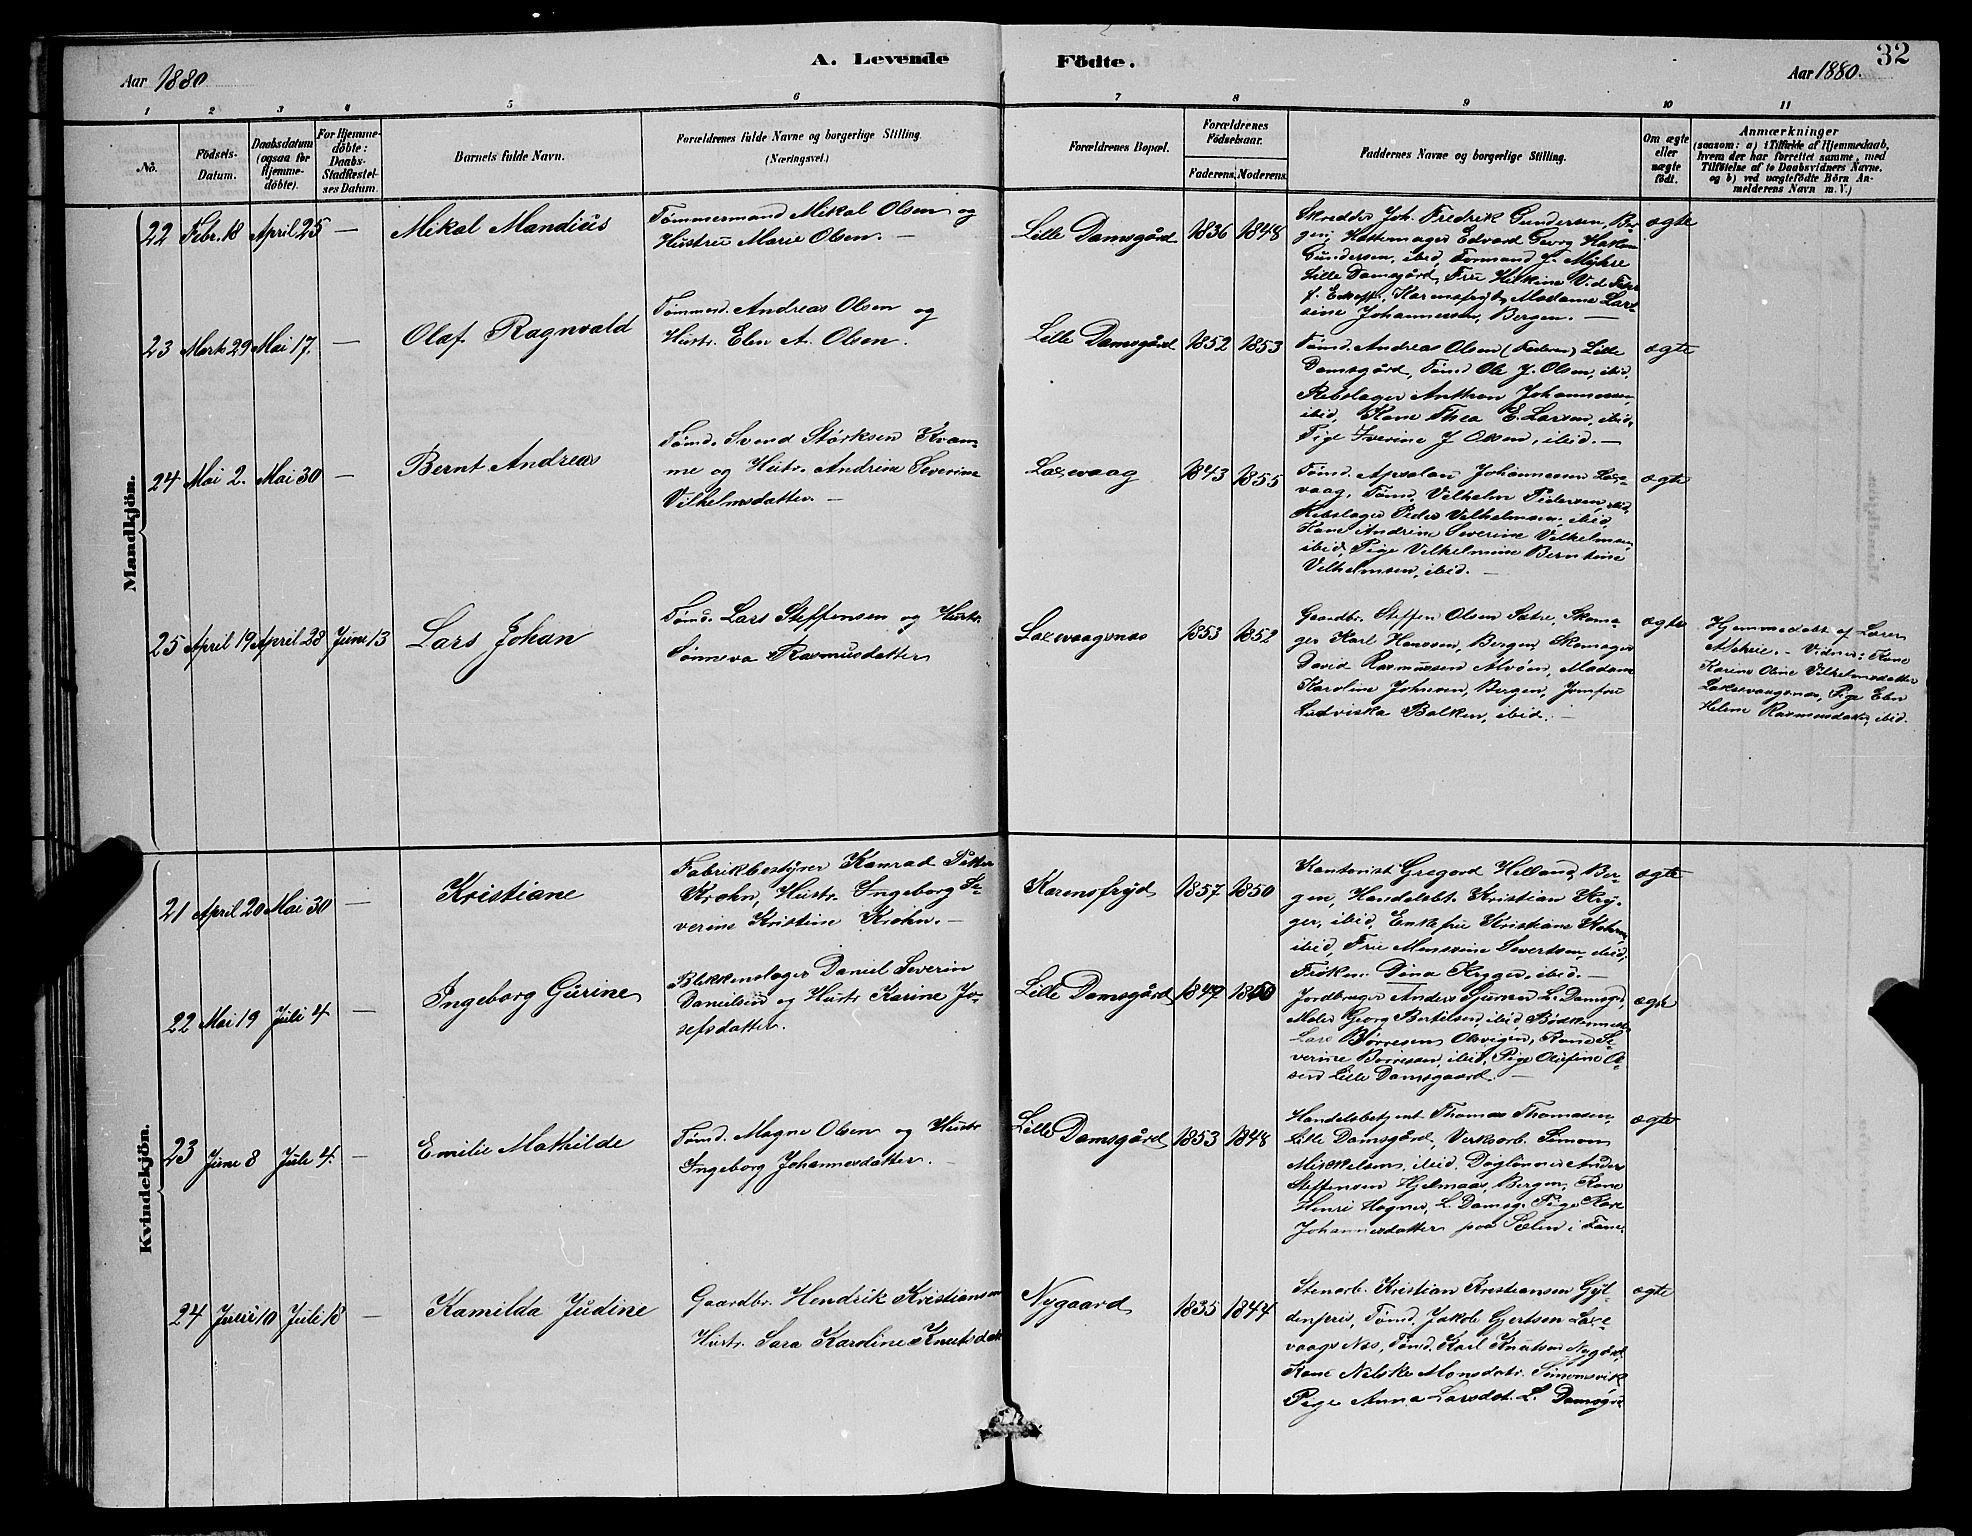 32
A. Levende Födte.
Aar 1880
Aar 1880.
1 2 3 4 5 6 7 8 9 10 11
No.
Födsels-Datum.
Daabsdatum (ogsaa for Hjemme-döbte).
For Hjemme-döbte: Daabs-Stadfæstel-ses Datum.
Barnets fulde Navn.
Forældrenes fulde Navne og borgerlige Stilling. (Næringsvei.)
Forældrenes Bopæl.
Forældrenes Födselsaar.
Faderens. Moderens.
Faddernes Navne og borgerlige Stilling.
Om ægte eller uægte födt.
Anmærkninger
(saasom: a) i Tilfælde af Hjemmedaab,
hvem der har forrettet samme, med
Tilföielse af to Daabsvidners Navne.
og b) ved uægtefödte Börn An-
melderens Navn m. V.)
Mandkjön.
22 Febr. 18 April 25 — Mikal Mandius
Tømmermand Mikal Olsen og
Hustru Marie Olsen. —
Lille Damsgård 1836 1848
Skredder Joh. Fredrik Gundersen, Ber-
gen; Hattemager Edvard Georg Hakon
Gundersen, ibid, Formand J. Myhre
Lille Damsgård, Fru
Karensfryd, Madame Lar-
sine Johannessen, Bergen. —
ægte
23 Marts 29 Mai 17. — Olaf Ragnvald
Tømmerd. Andreas Olsen og
Hustr. Elen A. Olsen.
Lille Damsgård 1852 1853
Tømd. Andreas Olsen (Faderen) Lille
Damsgård, Tømd Ole J. Olsen, ibid,
Rebslager Anthon Johannessen,
ibid, Kone Thea E. Larsen, ibid,
Pige Iverine J Olsen, ibid. —
ægte
24 Mai 2. Mai 30 — Bernt Andreas
Tømd. Svend Størksen Kvam-
me og Hustr. Andrine Severine
Vilhelmsdatter. —
Laxevaag 1843 1855
Tømd. Apsalon Johannessen Laxe-
vaag, Tømd. Vilhelm Pedersen, ibid,
Rebslager Peder Vilhelmsen, ibid,
Kone Andrine Severine Vilhelmsen,
ibid, Pige Vilhelmine Berntine
Vilhelmsen, ibid. —
ægte
25 April 19 April 28 Juni 13 Lars Johan
Tømd. Lars Steffensen og Hustr.
Sønneva Rasmusdatter
Laxevaagsnes 1853 1852
Gaardbr. Steffen Olsen Sætre, Skoma-
ger Karl Hanssen, Bergen, Skomager
David Rasmussen Alvøen, Madam
Karoline Johnsen, Bergen, Jomfru
Ludviska Balken, ibid. —
ægte
Hjemmedøbt af Lærer
Vidner: Kone
Karine Oline Vilhelmsdatter
Laksevaagsnes, Pige Elen
Helene Rasmusdatter, ibid.
Kvindekjön.
21 April 20 Mai 30 — Kristiane
Fabrikbestyrer Konrad Petter
Krohn, Hustr. Ingeborg Se-
verine Kristine Krohn. —
Karensfryd 1857 1850
Kontorist Gregard Helland, Ber-
gen, Handelsbt. Kristian Kry-
ger, ibid, Enkefru Kristiane
ibid, Fru Monsine Sivertsen, ibid,
Frøken Dina Kryger, ibid. —
ægte
22 Mai 19 Juli 4 — Ingeborg Gurine
Blikkenslager Daniel Severin
Danielsen og Hustr Karine Jo-
sefsdatter.
Lille Damsgård 1847 1850
Jordbruger Anders L. Damsg.,
Maler Georg Bertelsen, ibid, Bødkermester
Lars Børresen Olsvigen, Kone Se-
verine Børresen, ibid, Pige Olufine Ol-
sen Lille Damsgaard. —
ægte
23 Juni 8 Juli 4. — Emilie Mathilde
Tømd. Magne Olsen og Hustr
Ingeborg Johannesdatter. —
Lille Damsgård 1853 1848
Handelsbetjent Thomas Thomasen
Lille Damsgård, Verksarb. Simon
Mikkelsen, ibid, Dagløner Anders
Steffensen Hjelmaas, Bergen, Kone
Henri Wagner, L. Damsg. Pige Kari
Johannesdatter paa Sælen i Fane
ægte
24 Juni 10 Juli 18 — Kamilda Judine
Gaardbr. Hendrik Kristiansen
Hustr. Sara Karoline Knutsdatt
Nygaard 1835 1844
Stenarb. Kristian Kristiansen Gyl-
denpris, Tømd. Jakob Gjertsen Laxe-
vaags Nes, Tømd. Karl Knutsen Nygård,
Kone Nilske Monsdatr. Simonsvik
Pige Anna Larsdat. L. Damsgrd
ægte